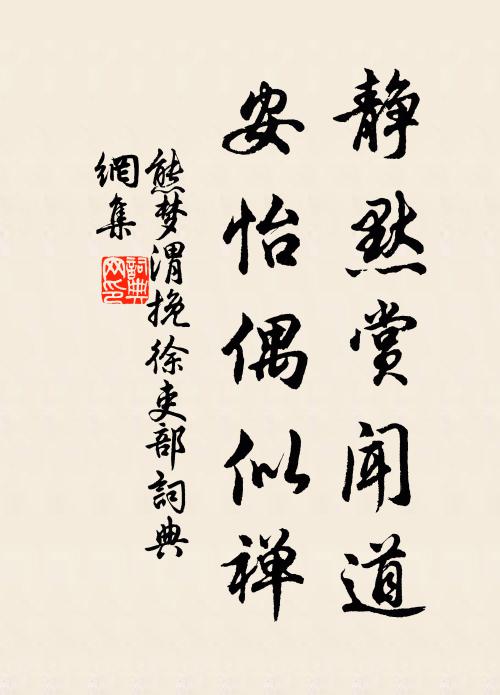 静默赏闻道
安怡偶似禅
熊梦渭挽徐吏部詞典
網集
詞典網印